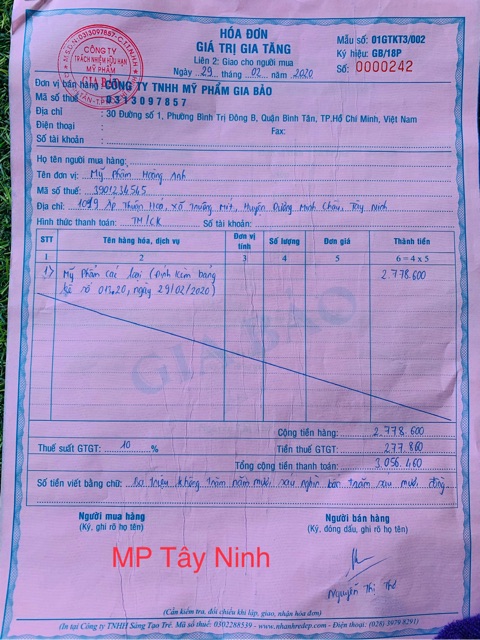 HÓA ĐƠN
GIÁ TRỊ GIA TĂNG
Liên 2: Giao cho người mua
Ngày 29 tháng 02 năm 2020
Mẫu số: 01GTKT3/002
Ký hiệu: GB/18P
Số: 0000242
M.S.D.N: 0313097857-C.T.TNHH
CÔNG TY
TRÁCH NHIỆM HỮU HẠN
MỸ PHẨM
GIA BẢO
Đơn vị bán hàng CÔNG TY TNHH MỸ PHẨM GIA BẢO
Mã số thuế 0313097857
Địa chỉ : 30 Đường số 1, Phường Bình Trị Đông B, Quận Bình Tân, TP.Hồ Chí Minh, Việt Nam
Điện thoại : Fax:
Số tài khoản :
Họ tên người mua hàng:
Tên đơn vị: Mỹ Phẩm Hoàng Anh
Mã số thuế: 3901234545
Địa chỉ: 1019 Ấp Thuận Hoà, xã Truông Mít, Huyện Dương Minh Châu, Tây Ninh
Hình thức thanh toán: TM/CK Số tài khoản:
STT Tên hàng hóa, dịch vụ Đơn vị tính Số lượng Đơn giá Thành tiền
1 2 3 4 5 6 = 4 x 5
1) Mỹ Phẩm các loại (Đính kèm bảng 2.778.600
kê số 013.20, ngày 29/02/2020)
GIA BẢO
Cộng tiền hàng: 2.778.600
Thuế suất GTGT: 10 % Tiền thuế GTGT: 277.860
Tổng cộng tiền thanh toán: 3.056.460
Số tiền viết bằng chữ: Ba triệu không trăm năm mươi sáu nghìn bốn trăm sáu mươi đồng.
Người mua hàng
(Ký, ghi rõ họ tên)
Người bán hàng
(Ký, đóng dấu, ghi rõ họ tên)
MP Tây Ninh
Nguyễn Thị Thê
(Cần kiểm tra, đối chiếu khi lập, giao, nhận hóa đơn)
(In tại Công ty TNHH Sáng Tạo Trẻ. Mã số thuế: 0302288539 - www.nhanhredep.com - Điện thoại: (028) 3979 8291)